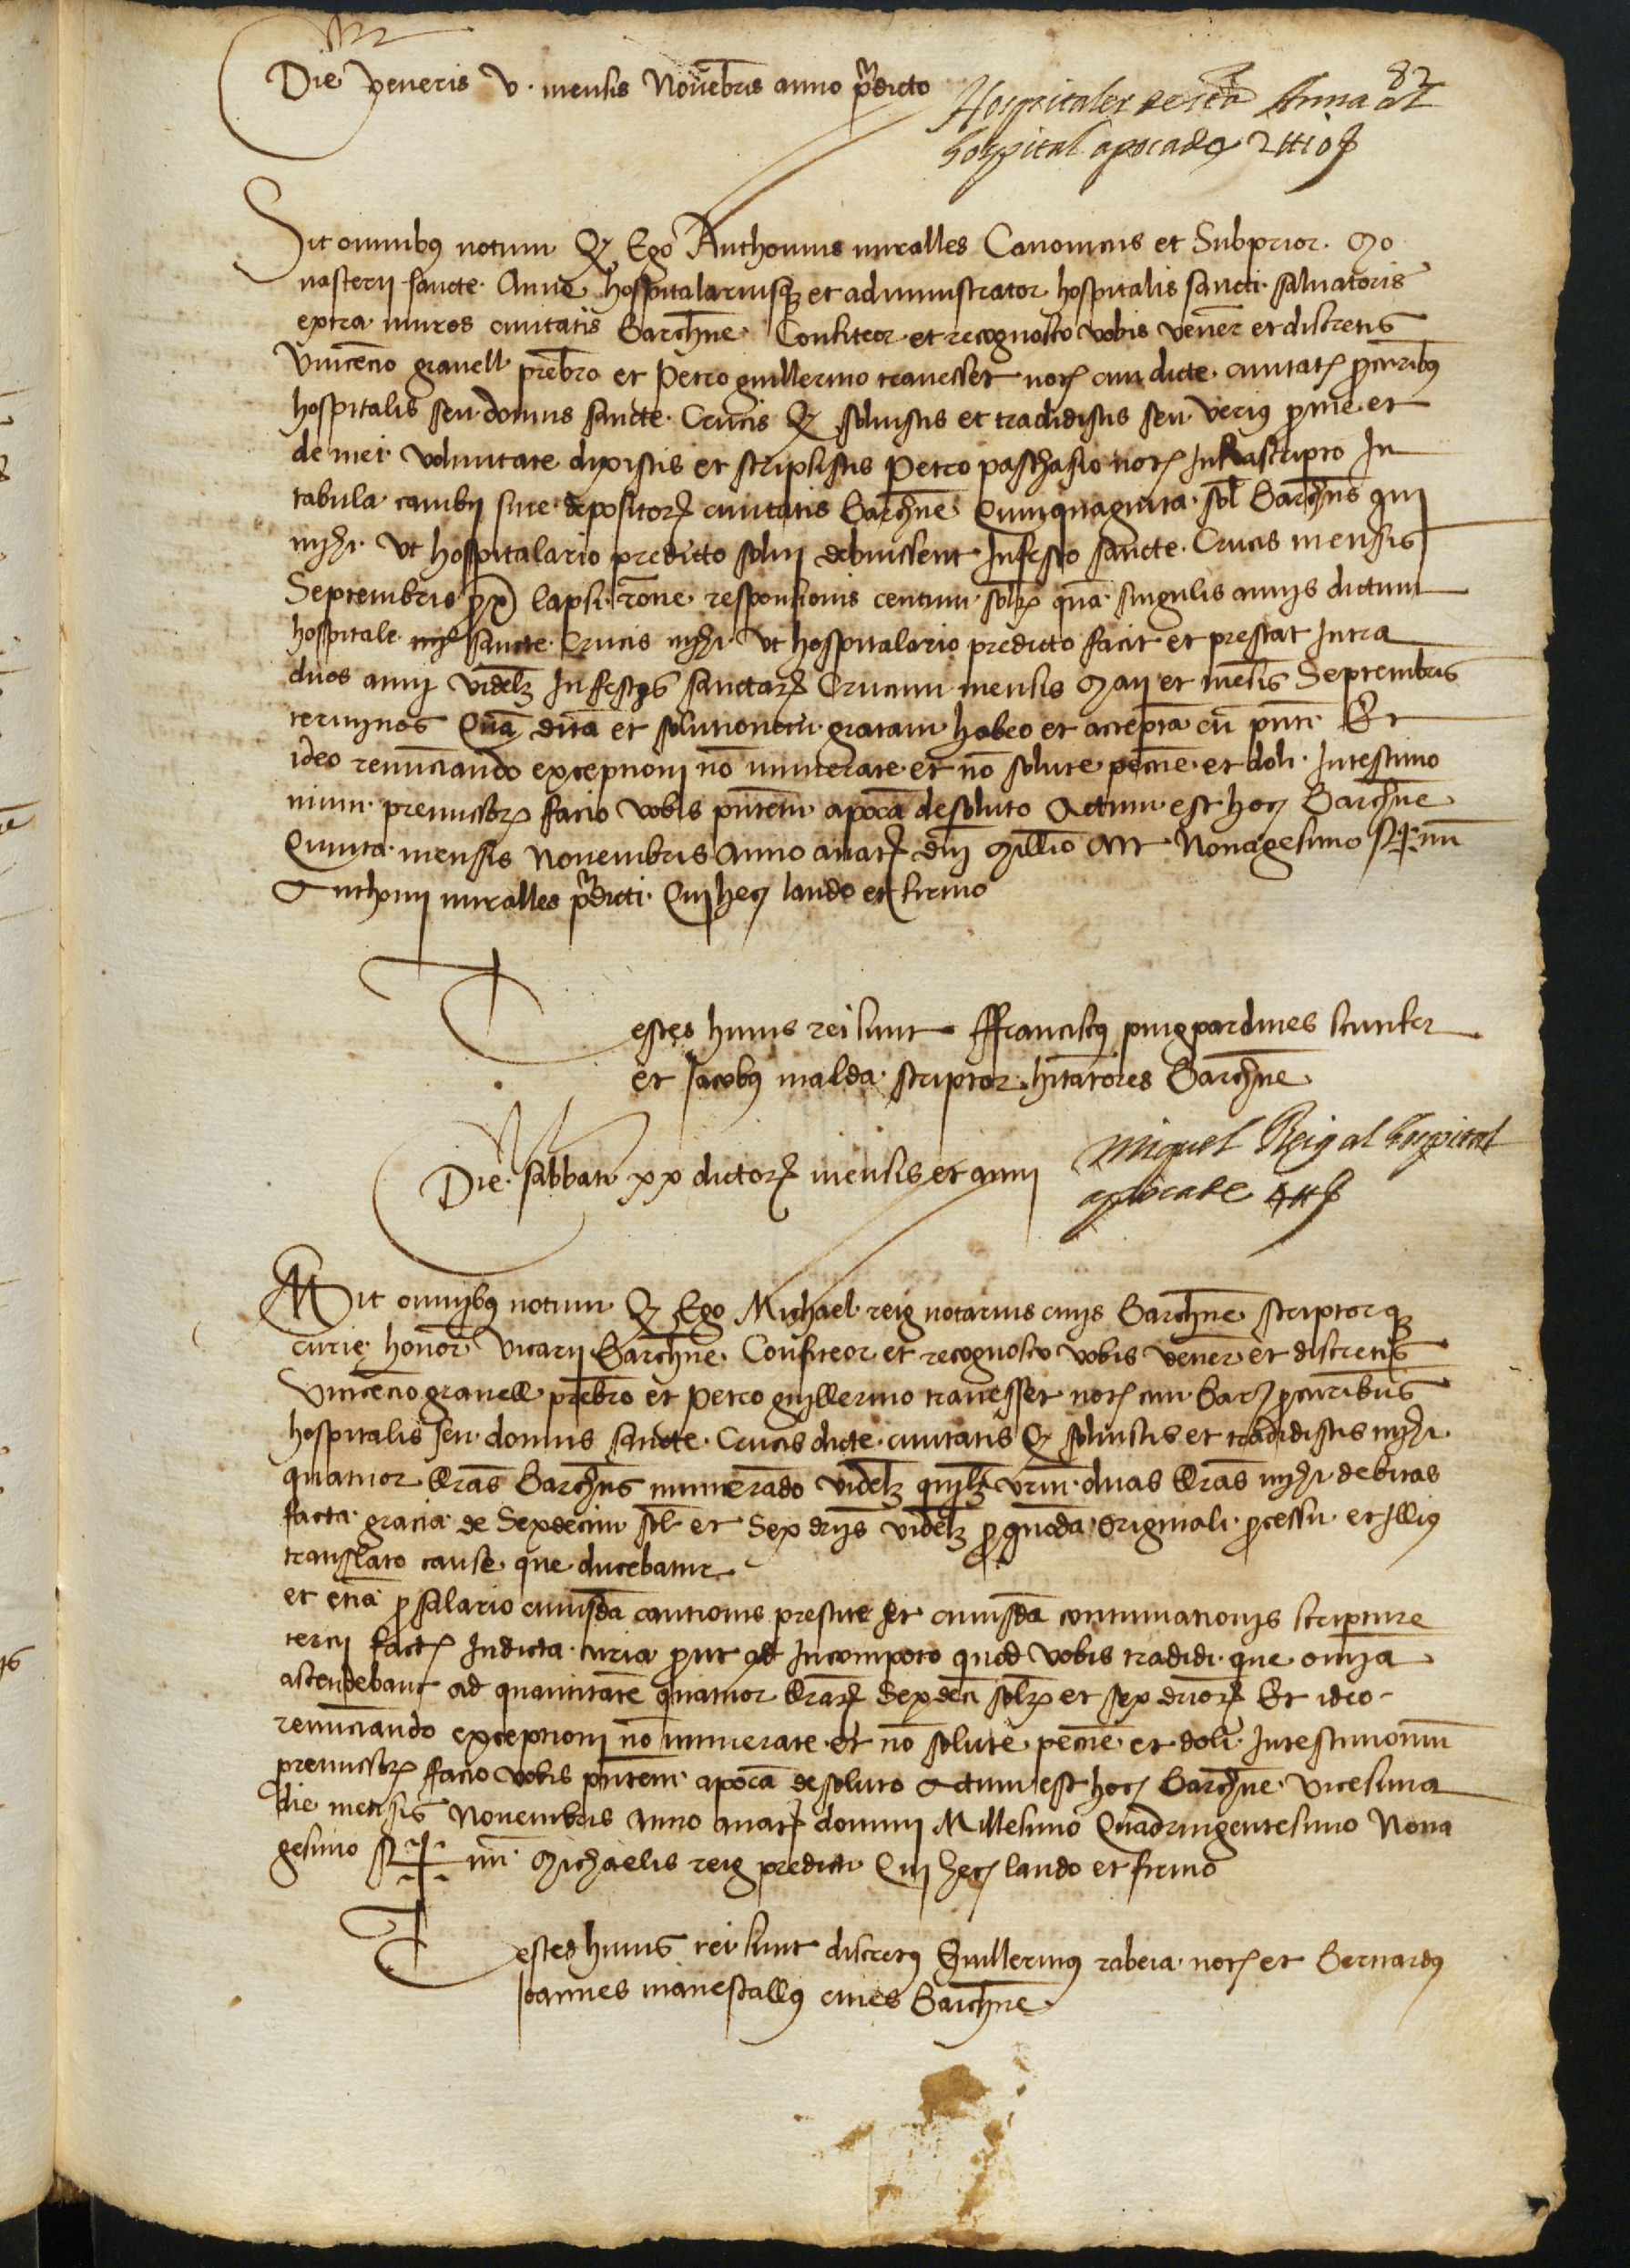 82
Die veneris v. mensis Novẽbris anno p̃dicto
Hospitaler de scta Anna al
hospital apocade 2 ₶ 10 ẞ
Sit omnibus notum Q Ego Anthonius miralles Canonicus et Subprior. Mo
nasterij sancte. Anne hospitalariusq et administrator hospitalis sancti. salvatoris
extra muros civitatis Barchne. Confiteor. et recognosco vobis veneř et discretis
Vincẽcio gravell prebr̃o et Petro guillermo travesset notř civi dicte. civitatř procuribus
hospitalis seu domus sancte. Crucis Q solvistis et tradidistis seu verius pro me. et
de mei voluntate dixistis et scripsistis Petro paschasio notř Infrascripto In
tabula cambij sive. depositorř civitatis Barchne. Quinquaginta. sol Barchns qui
michi. Ut hospitalario predicto solvi debuissent In festo sancte. Crucis mensis
Septembris prox lapsi. rõne. responsionis centum. solř quã. singulis annis dictum
hospitale. sancte. Crucis michi. ut hospitalario predicto facit et prestat Intra
duos anni videlz In festis sanctarř Crucum mensis Maij et mẽsis Septembris
terminos Quã ditã et solutionem. gratam habeo et acceptã cũ pñti Et
ideo renũciando exceptioni nõ numerate. et nõ solute. pecũie. et doli. In testimo
nium. premissorř facio vobis pñtem apocã de soluto Actum est hoc Barchne
Quinta mensis Novembris Anno a natř dñj Millio CCCC Nonagesimo S+num
Anthonij miralles p̃dicti. Qui hec laudo et firmo
Testes huius rei sunt ffranciscus puigpardines scutifer
et Jacobus malda scriptor hitatores Barchne.
Die. sabbati xx dictorř mensis et anni
Miquel Reig al hospital
apocade 4 ₶ ẞ
Sit omnibus notum Q Ego Michael. reig notarius civis Barchne scriptorq
curie honoř Vicarij Barchne. Confiteor. et recognosco vobis veneř et discretis
Vincẽcio gravell prebr̃o et Petro guillermo travesset notř civi Barř procuribus
hospitalis seu. domus sancte. Crucis dicte. civitatis Q solvistis et tradidistis michi.
quatuor libras Barchns numerãdo videlz quilz vrm. duas libras michi debitas
facta. gracia de Sexdecim sol et Sex driis videlz pro quodã originali. processu et illius
translato cause. que ducebatur
et eciã pro salario cuiusdã cautionis prestite et cuiusdã continuationis scripture
tercij factř In dicta. curia prout In compoto quod vobis tradidi. que omia
ascendebant ad quantitatẽ quatuor librarř Sexdeci solř et sex driorř Et ideo
renũciando exceptioni nõ numerate. et nõ solute. pecũie. et doli. In testimoniũ
premissorř facio vobis pñtem apocã de soluto Actum est hoc Barchne. vicesima
die mensis Novembris Anno a natř domini Millesimo Quadringentesimo Nona
gesimo S+num Michaelis reig predicti Qui hec laudo et firmo
Testes huius rei. sunt discretus Guillermus rabeia. notř et Bernardus
Joannes manescallus cives Barchne